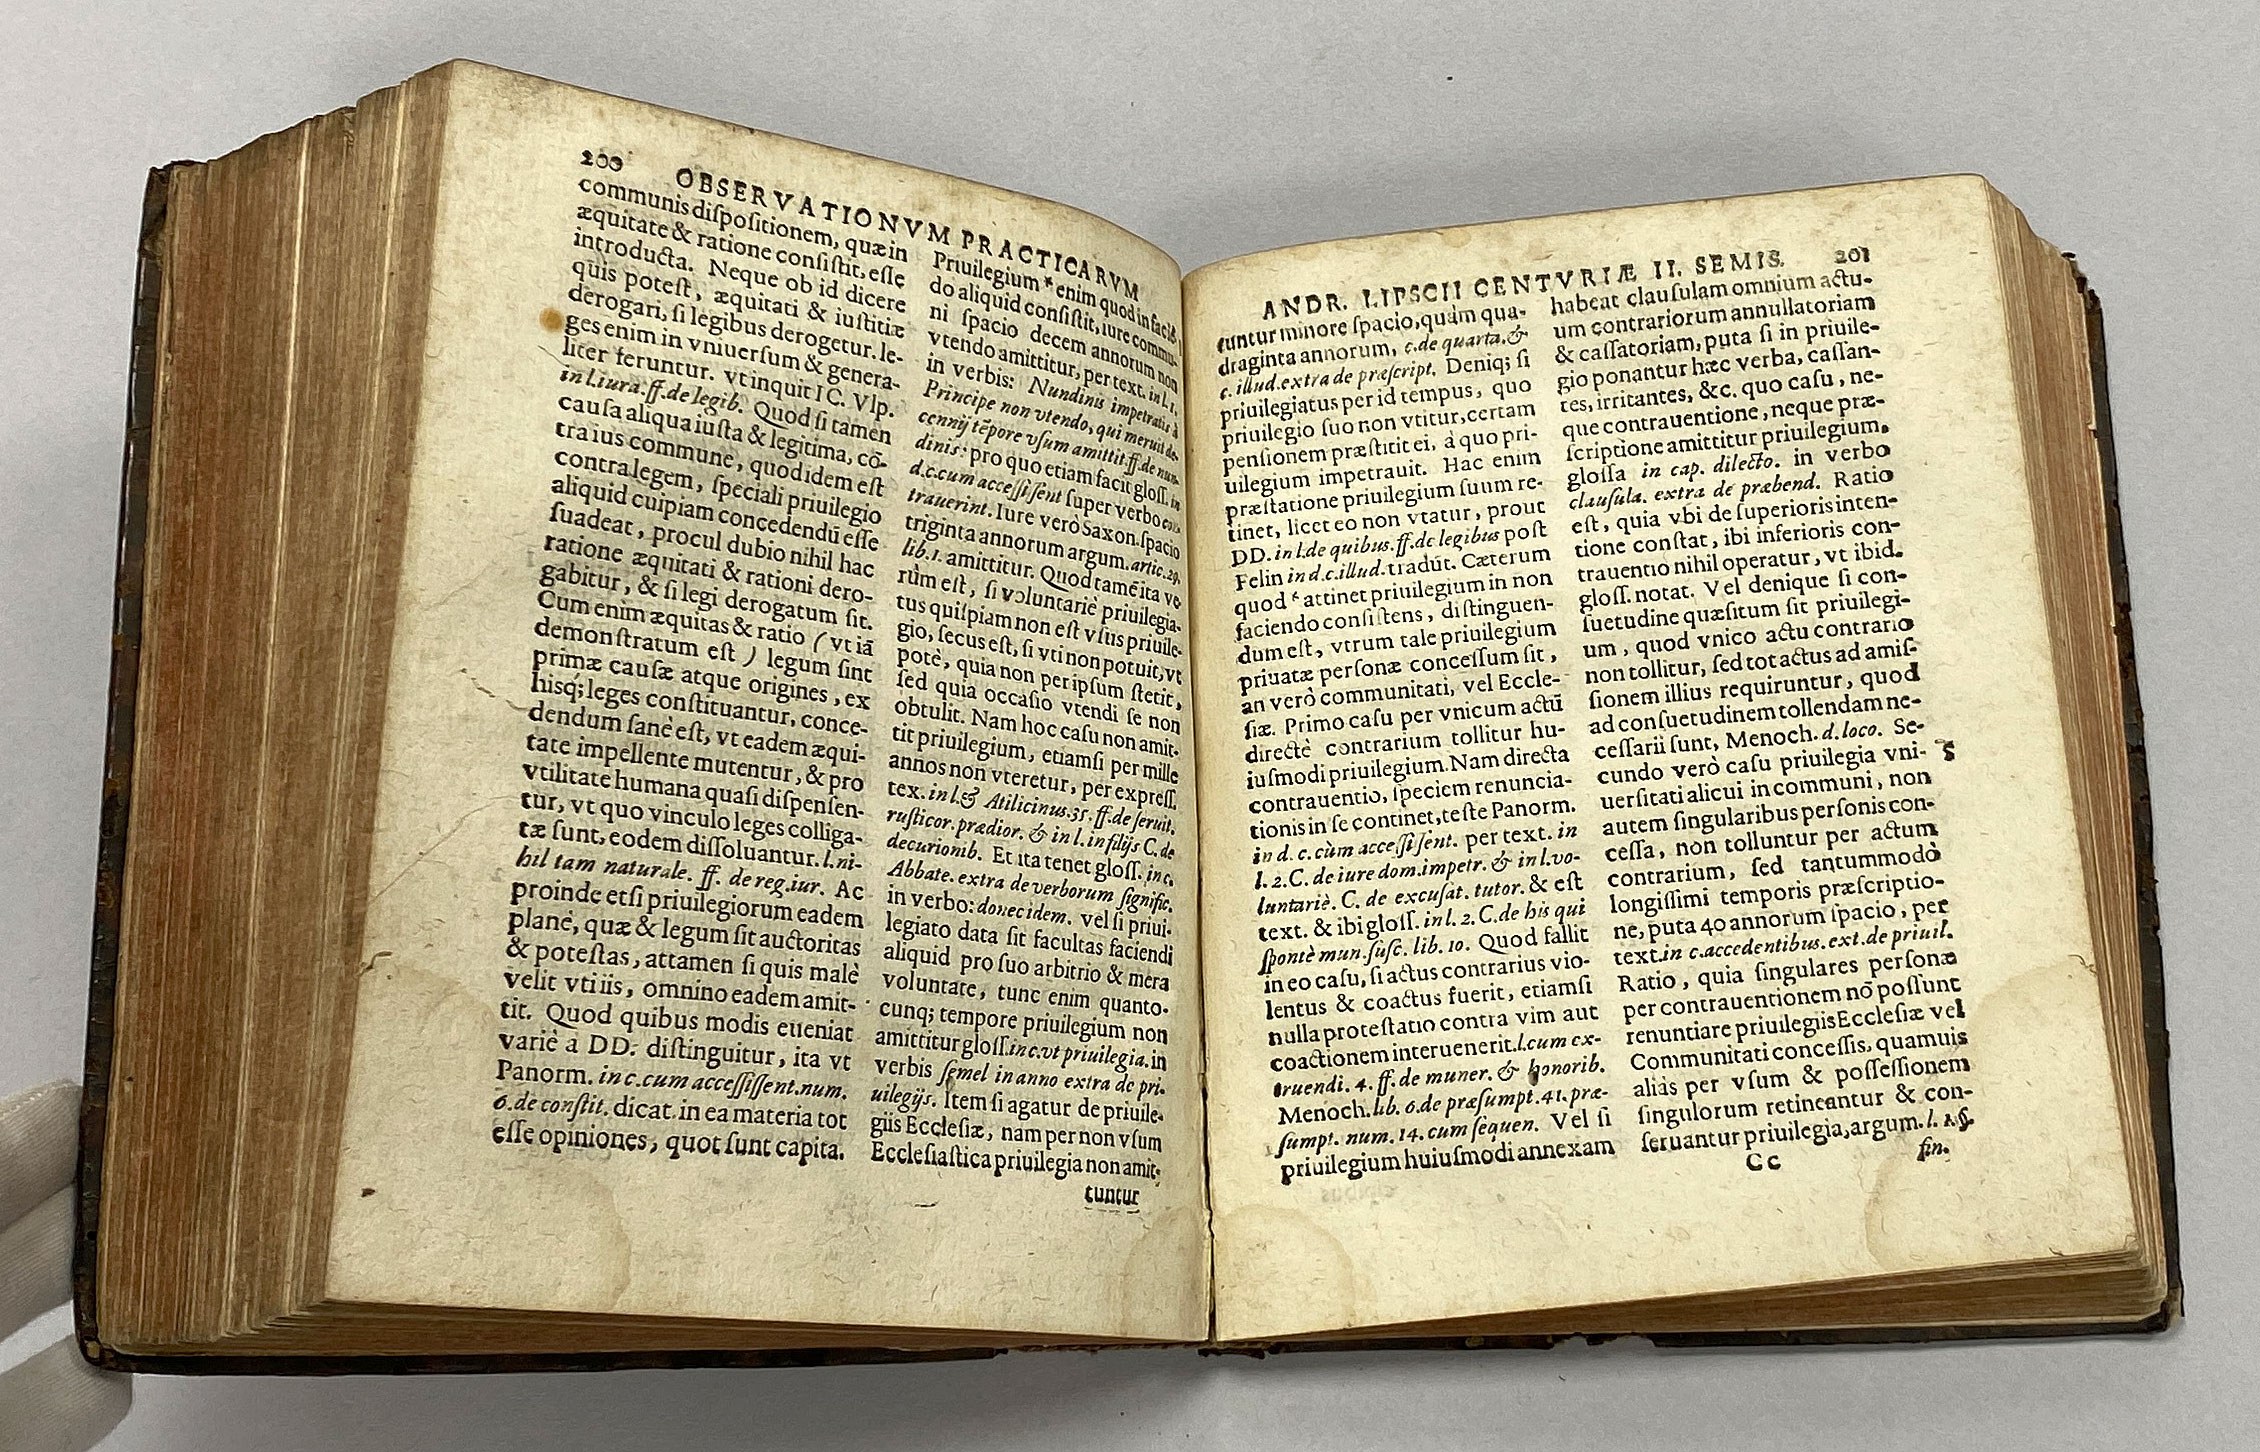 200 OBSERVATIONVM PRACTICARVM
communis diſpoſitionem, quæ in
æquitate & ratione conſiſtit, eſſe
introducta. Neque ob id dicere
quis poteſt, æquitati & iuſtitiæ
derogari, ſi legibus derogetur. le-
ges enim in vniuerſum & genera-
liter feruntur. vt inquit I C. Vlp.
in l. iura. ff. de legib. Quod ſi tamen
cauſa aliqua iuſta & legitima, cō-
tra ius commune, quod idem eſt
contra legem, ſpeciali priuilegio
aliquid cuipiam concedendū eſſe
ſuadeat, procul dubio nihil hac
ratione æquitati & rationi dero-
gabitur, & ſi legi derogatum ſit.
Cum enim æquitas & ratio (vt iā
demonſtratum eſt) legum ſint
primæ cauſæ atque origines, ex
hisq́; leges conſtituantur, conce-
dendum ſanè eſt, vt eadem æqui-
tate impellente mutentur, & pro
vtilitate humana quaſi diſpenſen-
tur, vt quo vinculo leges colliga-
tæ ſunt, eodem diſſoluantur. l. ni-
hil tam naturale. ff. de reg. iur. Ac
proinde etſi priuilegiorum eadem
planè, quæ & legum ſit auctoritas
& poteſtas, attamen ſi quis malè
velit vti iis, omnino eadem amit-
tit. Quod quibus modis eueniat
variè à DD. diſtinguitur, ita vt
Panorm. in c. cum acceſſiſſent. num.
6. de conſtit. dicat in ea materia tot
eſſe opiniones, quot ſunt capita.
Priuilegium * enim quod in faciē-
do aliquid conſiſtit, iure commu-
ni ſpacio decem annorum non
vtendo amittitur, per text. in l. 1.
in verbis: Nundinis impetratis à
Principe non vtendo, qui meruit de-
cennij tēpore vſum amittit. ff. de nun-
dinis: pro quo etiam facit gloſſ. in
d. c. cum acceſſiſſent ſuper verbo con-
trauerint. Iure verò Saxon. ſpacio
triginta annorum argum. artic. 29.
lib. 1. amittitur. Quod tamē ita ve-
rùm eſt, ſi voluntariè priuilegia-
tus quiſpiam non eſt vſus priuile-
gio, ſecus eſt, ſi vti non potuit, vt
potè, quia non per ipſum ſtetit,
ſed quia occaſio vtendi ſe non
obtulit. Nam hoc caſu non amit-
tit priuilegium, etiamſi per mille
annos non vteretur, per expreſſ.
tex. in l. & Atilicinus. 35. ff. de ſeruit.
ruſticor. prædior. & in l. in filijs C. de
decurionib. Et ita tenet gloſſ. in c.
Abbate. extra de verborum ſignific.
in verbo: donec idem. vel ſi priui-
legiato data ſit facultas faciendi
aliquid pro ſuo arbitrio & mera
voluntate, tunc enim quanto-
cunq; tempore priuilegium non
amittitur gloſſ. in c. vt priuilegia. in
verbis ſemel in anno extra de pri-
uilegijs. Item ſi agatur de priuile-
giis Eccleſiæ, nam per non vſum
Eccleſiaſtica priuilegia non amit-
tuntur
ANDR. LIPSCII CENTVRIÆ II. SEMIS. 201
tuntur minore ſpacio, quàm qua-
draginta annorum, c. de quarta, &
c. illud. extra de præſcript. Deniq; ſi
priuilegiatus per id tempus, quo
priuilegio ſuo non vtitur, certam
penſionem præſtitit ei, à quo pri-
uilegium impetrauit. Hac enim
præſtatione priuilegium ſuum re-
tinet, licet eo non vtatur, prout
DD. in l. de quibus. ff. de legibus poſt
Felin in d. c. illud. tradūt. Cæterum
quod * attinet priuilegium in non
faciendo conſiſtens, diſtinguen-
dum eſt, vtrum tale priuilegium
priuatæ perſonæ conceſſum ſit,
an verò communitati, vel Eccle-
ſiæ. Primo caſu per vnicum actū
directè contrarium tollitur hu-
iuſmodi priuilegium. Nam directa
contrauentio, ſpeciem renuncia-
tionis in ſe continet, teſte Panorm.
in d. c. cùm acceſſiſſent. per text. in
l. 2. C. de iure dom. impetr. & in l. vo-
luntariè. C. de excuſat. tutor. & eſt
text. & ibi gloſſ. in l. 2. C. de his qui
ſpontè mun. ſuſc. lib. 10. Quod fallit
in eo caſu, ſi actus contrarius vio-
lentus & coactus fuerit, etiamſi
nulla proteſtatio contra vim aut
coactionem interuenerit. l. cum ex-
truendi. 4. ff. de muner. & honorib.
Menoch. lib. 6. de præſumpt. 41. præ-
ſumpt. num. 14. cum ſequen. Vel ſi
priuilegium huiuſmodi annexam
habeat clauſulam omnium actu-
um contrariorum annullatoriam
& caſſatoriam, puta ſi in priuile-
gio ponantur hæc verba, caſſan-
tes, irritantes, &c. quo caſu, ne-
que contrauentione, neque præ-
ſcriptione amittitur priuilegium.
gloſſa in cap. dilecto. in verbo
clauſula. extra de præbend. Ratio
eſt, quia vbi de ſuperioris inten-
tione conſtat, ibi inferioris con-
trauentio nihil operatur, vt ibid.
gloſſ. notat. Vel denique ſi con-
ſuetudine quæſitum ſit priuilegi-
um, quod vnico actu contrario
non tollitur, ſed tot actus ad amiſ-
ſionem illius requiruntur, quod
ad conſuetudinem tollendam ne-
ceſſarii ſunt, Menoch. d. loco. Se-
cundo verò caſu priuilegia vni- 5
uerſitati alicui in communi, non
autem ſingularibus perſonis con-
ceſſa, non tolluntur per actum
contrarium, ſed tantummodò
longiſſimi temporis præſcriptio-
ne, puta 40 annorum ſpacio, per
text. in c. accedentibus. ext. de priuil.
Ratio, quia ſingulares perſonæ
per contrauentionem nō poſſunt
renuntiare priuilegiis Eccleſiæ vel
Communitati conceſſis, quamuis
aliàs per vſum & poſſeſſionem
ſingulorum retineantur & con-
ſeruantur priuilegia, argum. l. 1. §.
Cc fin.